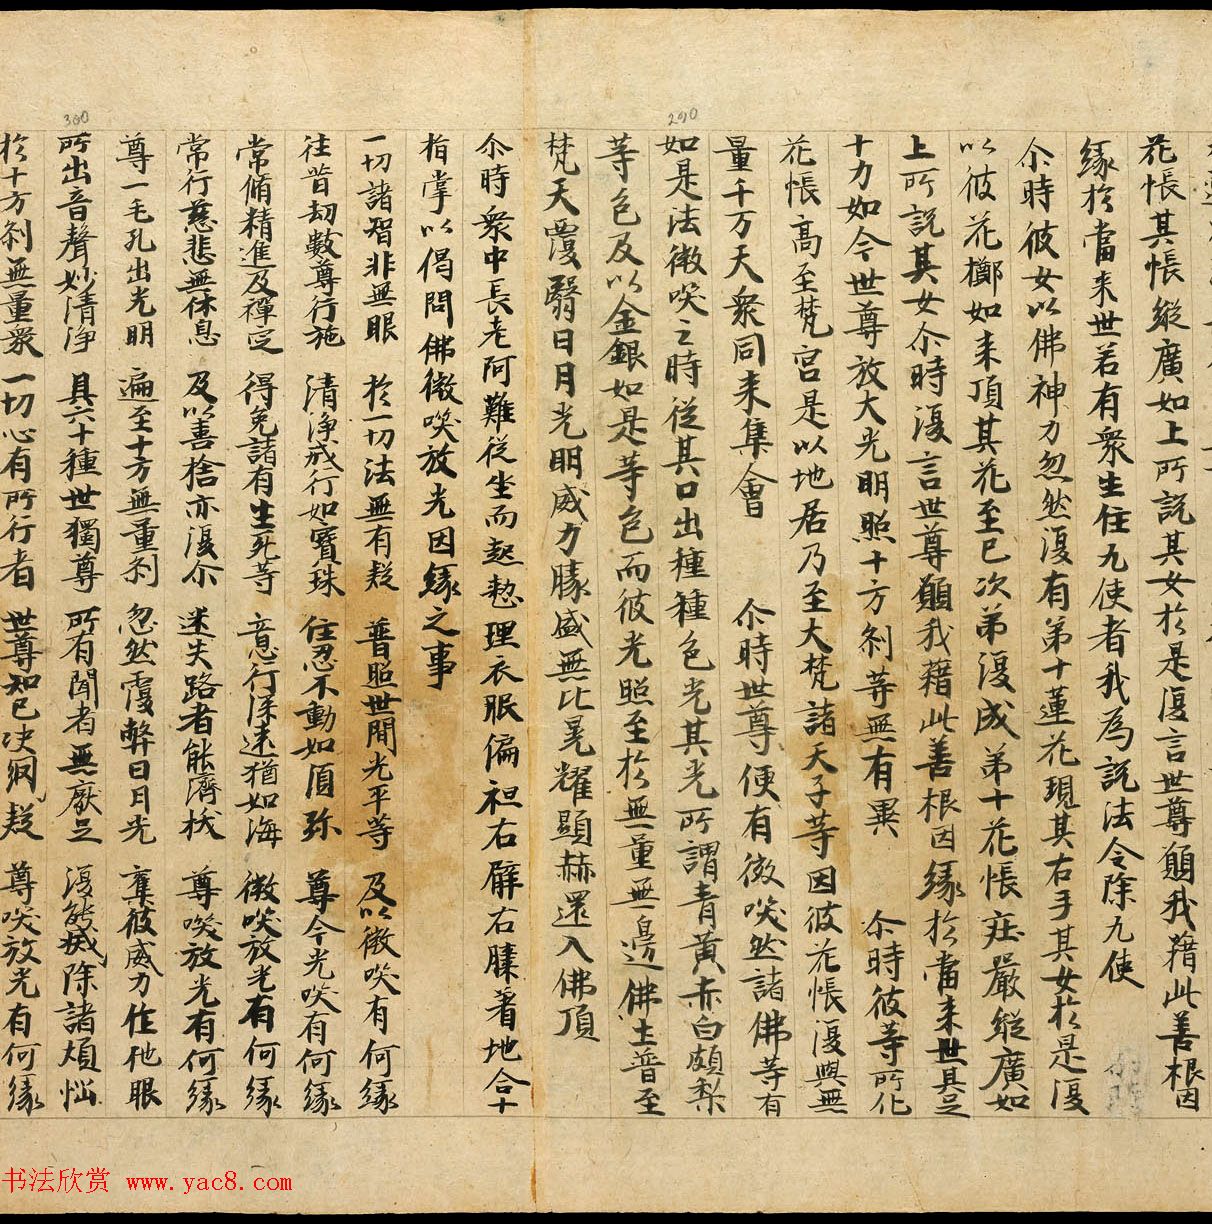 花帳其帳縱廣如上所説其女於是復言世尊願我藉此善根因
緣於當来世若有衆生住九使者我為説法令除九使
尒時彼女以佛神力忽然復有第十蓮花現其右手其女於是復
以彼花擲如来頂其花至已次第復成第十花帳莊嚴縱廣如
上所説其女尒時復言世尊願我藉此善根因緣於當来世具足
十力如今世尊放大光明照十方刹等無有異 尒時彼等所化
花帳高至梵宮是以地居乃至大梵諸天子等因彼花帳復與無
量千万天衆同来集會 尒時世尊便有微咲然諸佛等有
290
如是法微咲之時從其口出種種色光其光所謂青黃赤白頗梨
等色及以金銀如是等色而彼光照至於無量無邊佛土普至
梵天覆翳日月光明威力勝盛無比晃耀顯赫還入佛頂
尒時衆中長老阿難從坐而起整理衣服偏袒右臂右膝著地合十
指掌以偈問佛微咲放光因緣之事
一切諸智非無眼 於一切法無有疑 普照世間光平等 及以微咲有何緣
往昔劫數尊行施 清淨戒行如寶珠 住忍不動如湏弥 尊今光咲有何緣
常脩精進及禪定 得免諸有生死等 意行深遠猶如海 微咲放光有何緣
常行慈悲無休息 及以善捨亦復尒 迷失路者能濟拔 尊咲放光有何緣
尊一毛孔出光明 遍至十方無量刹 忽然覆弊日月光 奪彼威力作他眼
300
所出音聲妙清淨 具六十種世獨尊 所有聞者無厭足 復能滅除諸煩惱
於十方刹無量衆 一切心有所行者 世尊知已决網疑 尊咲放光有何緣
书法欣赏 www.yac8.com